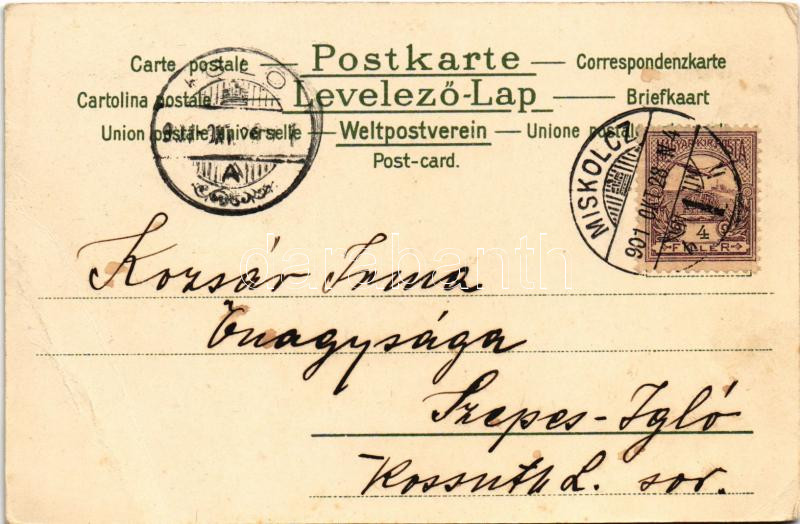 Carte postale — Postkarte — Correspondenzkarte
Cartolina postale — Levelező-Lap — Briefkaart
Union postale universelle — Weltpostverein — Unione postale
Post-card.
IGLÓ
A
MISKOLCZ
901 OKT. 28
MAGYAR KIR. POSTA
1
4
FILLÉR
Kozsár Irma
Őnagysága
Szepes-Igló
Kossuth L. sor.
darabanth